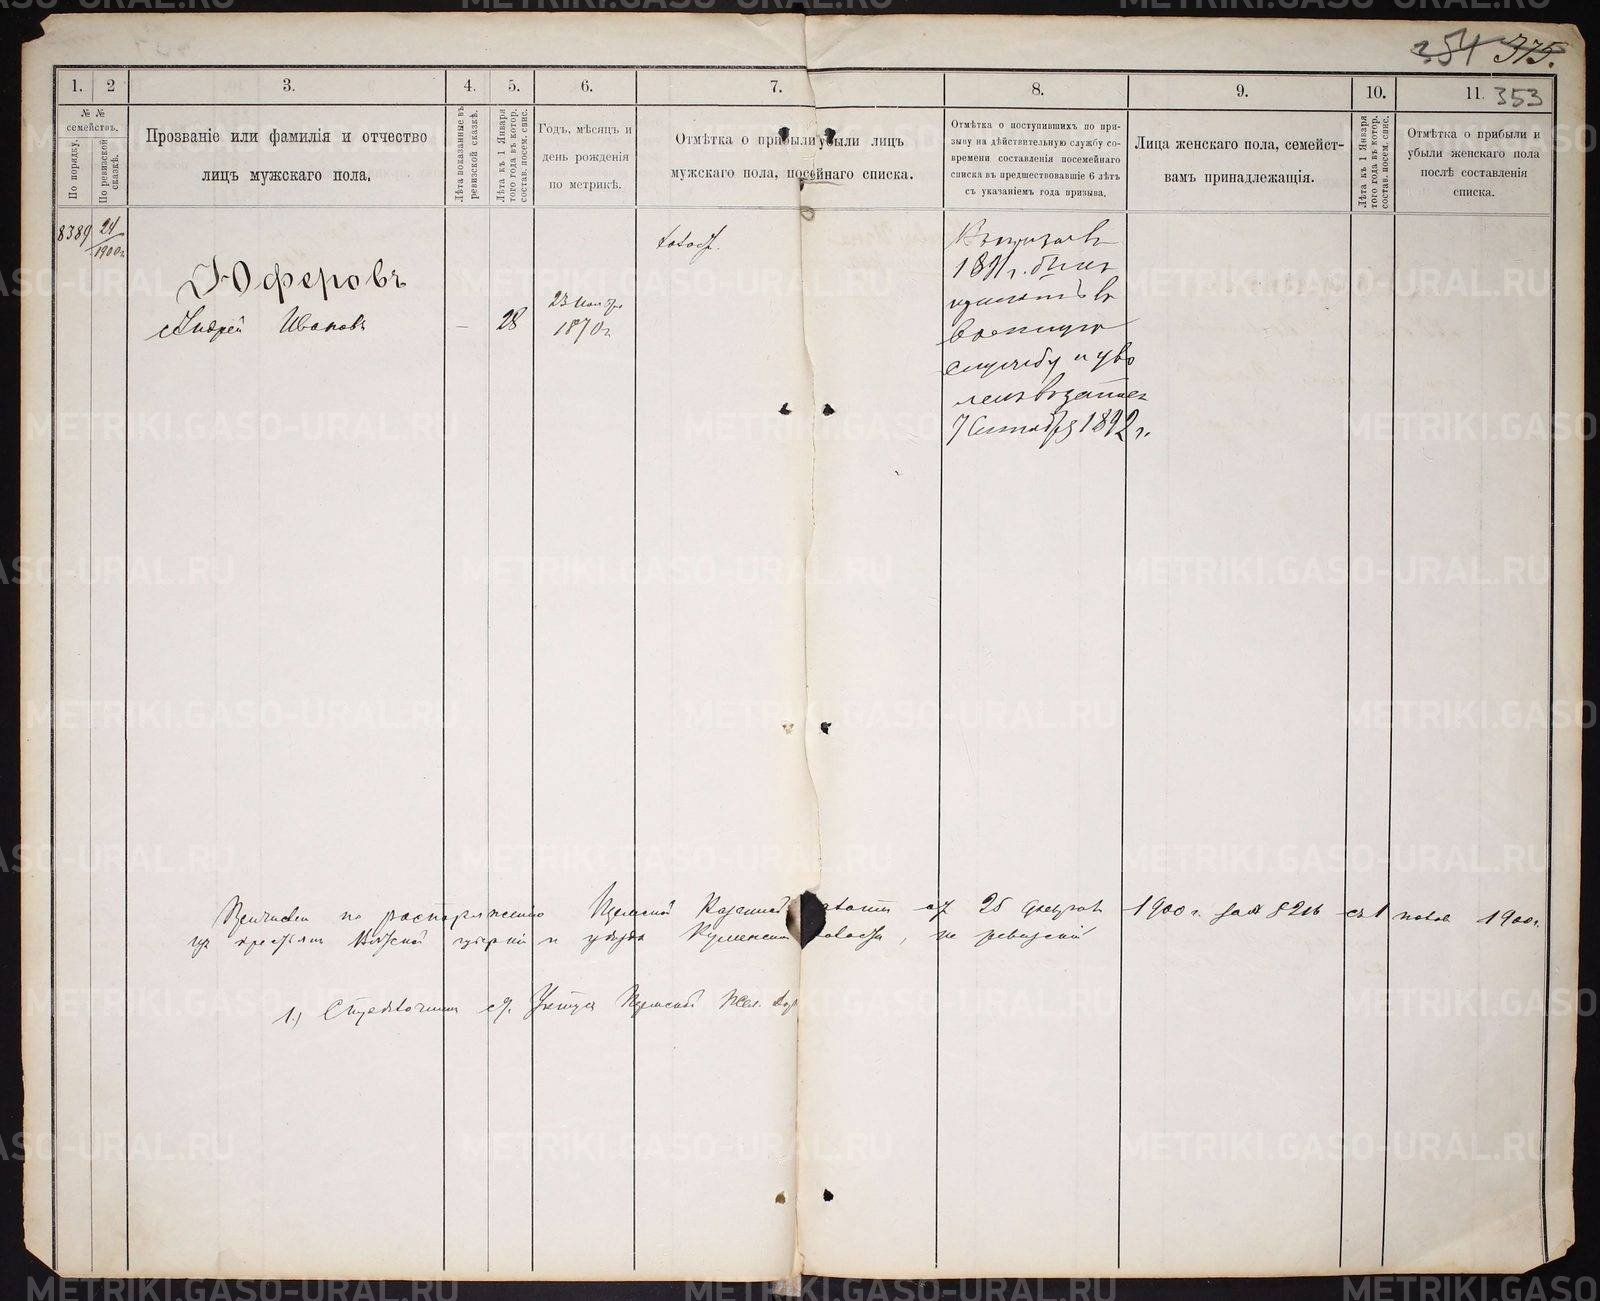 354 375.
1. 2 3. 4. 5. 6. 7. 8. 9. 10. 11. 353
№ №
семействъ.
По порядку.
По ревизской
сказкѣ.
Прозваніе или фамилія и отчество
лицъ мужскаго пола.
Лѣта показанные въ
ревизской сказкѣ.
Лѣта къ 1 Января
того года въ котор.
состав. посем. спис.
Годъ, мѣсяцъ и
день рожденія
по метрикѣ.
Отмѣтка о прибыли убыли лицъ
мужскаго пола, посейнаго списка.
Отмѣтка о поступившихъ по при-
зыву на дѣйствительную службу со-
времени составленія посемейнаго
списка въ предшествовавшіе 6 лѣтъ
съ указаніемъ года призыва.
Лица женскаго пола, семейст-
вамъ принадлежащія.
Лѣта къ 1 Января
того года въ котор.
состав. посем. спис.
Отмѣтка о прибыли и
убыли женскаго пола
послѣ составленія
списка.
8389 24
1900г.
Юферовъ
Андрей Ивановъ
—
28
23 Ноября
1870г.
холост.
Въ призывъ
1891 г. былъ
принятъ въ
военную
службу и уво
ленъ въ запасъ
7 Сентября 1892 г.
по распоряженію Пермской Казенной Палаты от 26 Февраля 1900 г. за № 8216 съ 1 полов 1900г.
из крестьян Вятской губерніи и уѣзда Куменской волости, по ревизской
1.) ст. Уктус Пермской Жел. дор.
METRIKI.GASO-URAL.RU